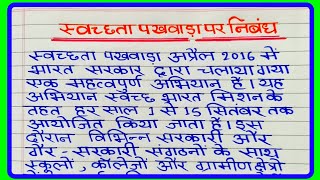 स्वच्छता पखवाड़ा पर निबंध
स्वच्छता पखवाड़ा अप्रैल 2016 में
भारत सरकार द्वारा चलाया गया
एक महत्वपुर्ण अभियान है। यह
अभियान स्वच्छ भारत मिशन के
तहत हर साल 1 से 15 सितंबर तक
आयोजित किया जाता है। इस
दौरान विभिन्न सरकारी और
गैर-सरकारी संगठनों के साथ
स्कूलों, कॉलेजों और ग्रामीण क्षेत्रों